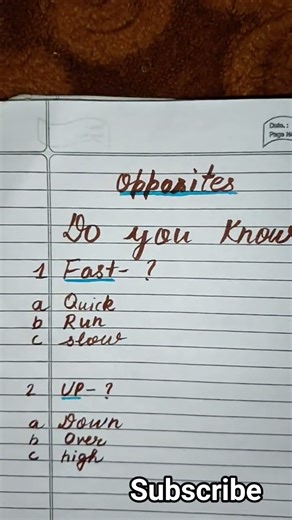 Date :
Page No
Opposites
Do you Know
1 Fast - ?
a Quick
b Run
c slow
2 UP - ?
a Down
b Over
c high
Subscribe